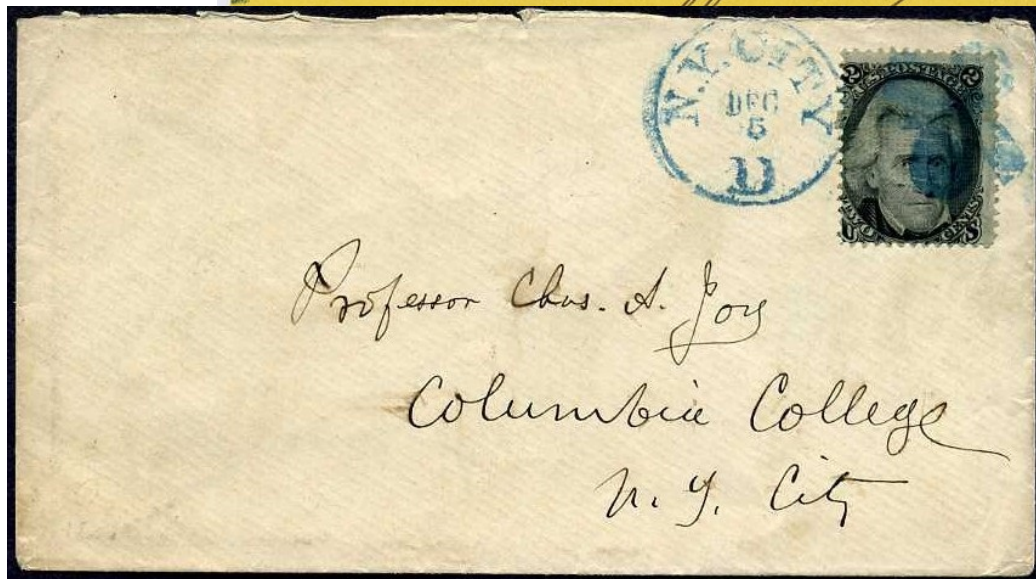 N.Y. CITY
DEC
5
D
2 U.S. POSTAGE 2
TWO CENTS
U S
Professor Chas. A. Joy
Columbia College
N. Y. City